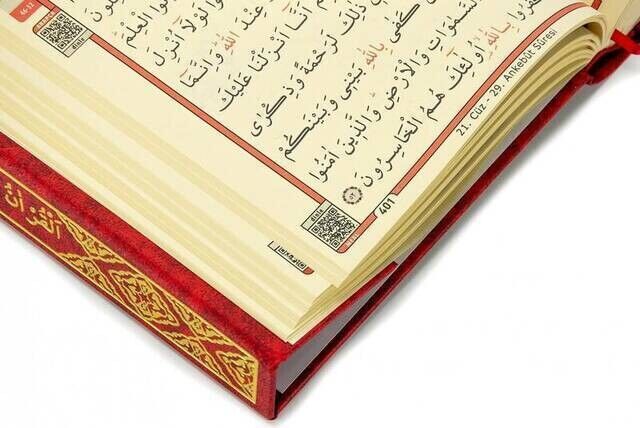 الْعِلْمَ
لَوْلَٓا اُنْزِلَ
عِنْدَ اللّٰهِ وَاِنَّمَٓا
اَنَّٓا اَنْزَلْنَا عَلَيْكَ
ذٰلِكَ لَرَحْمَةً وَذِكْرٰى
كَفٰى بِاللّٰهِ بَيْنٖى وَبَيْنَكُمْ
السَّمٰوَاتِ وَالْاَرْضِ وَالَّذٖينَ اٰمَنُوا
بِاللّٰهِ اُو۬لٰٓئِكَ هُمُ الْخَاسِرُونَ
21. Cüz - 29. Ankebût Sûresi
401
dinle
dinle
اَلْقُرْاٰنُ